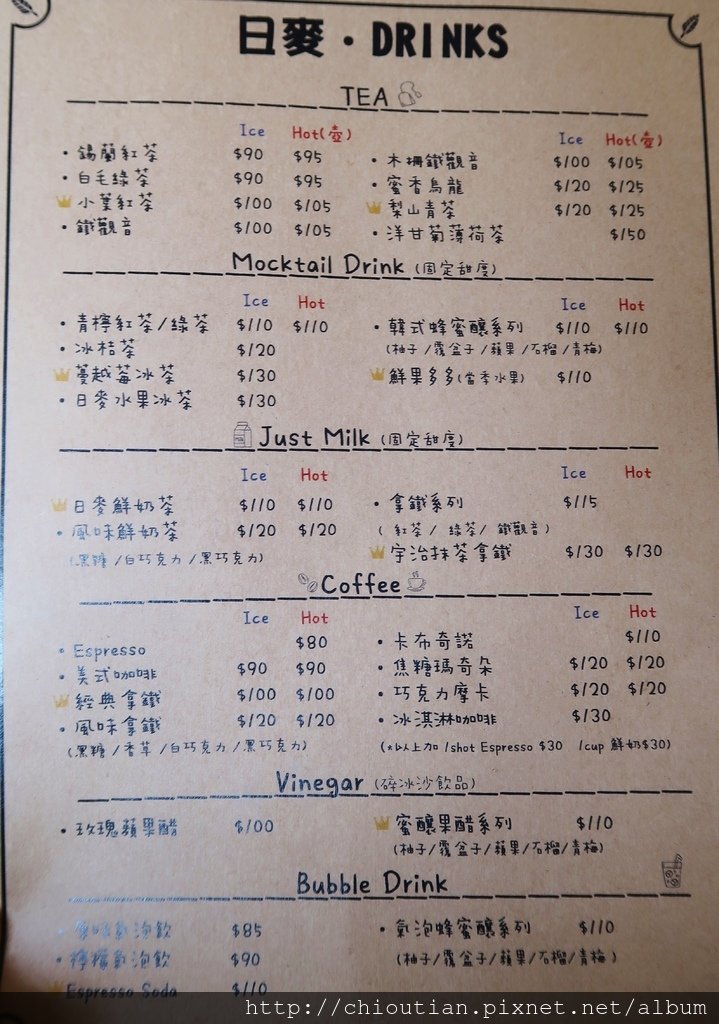 日麥·DRINKS
TEA
Ice Hot(壺) Ice Hot(壺)
·錫蘭紅茶 $90 $95 ·木柵鐵觀音 $100 $105
·白毛綠茶 $90 $95 ·蜜香烏龍 $120 $125
小葉紅茶 $100 $105 梨山青茶 $120 $125
·鐵觀音 $100 $105 ·洋甘菊薄荷茶 $150
Mocktail Drink (固定甜度)
Ice Hot Ice Hot
·青檸紅茶/綠茶 $110 $110 ·韓式蜂蜜釀系列 $110 $110
·冰桔茶 $120 (柚子/覆盆子/蘋果/石榴/青梅)
蔓越莓冰茶 $130 鮮果多多(當季水果) $110
·日麥水果冰茶 $130
Just Milk (固定甜度)
Ice Hot Ice Hot
日麥鮮奶茶 $110 $110 ·拿鐵系列 $115
·風味鮮奶茶 $120 $120 (紅茶/綠茶/鐵觀音)
(黑糖/白巧克力/黑巧克力) 宇治抹茶拿鐵 $130 $130
Coffee
Ice Hot Ice Hot
·Espresso $80 ·卡布奇諾 $110
·美式咖啡 $90 $90 ·焦糖瑪奇朵 $120 $120
經典拿鐵 $100 $100 ·巧克力摩卡 $120 $120
·風味拿鐵 $120 $120 ·冰淇淋咖啡 $130
(黑糖/香草/白巧克力/黑巧克力) (*以上加 1shot Espresso $30 1cup 鮮奶$30)
Vinegar (碎冰沙飲品)
·玫瑰蘋果醋 $100 蜜釀果醋系列 $110
(柚子/覆盆子/蘋果/石榴/青梅)
Bubble Drink
·原味氣泡飲 $85 ·氣泡蜂蜜釀系列 $110
·檸檬氣泡飲 $90 (柚子/覆盆子/蘋果/石榴/青梅)
Espresso Soda $110
http://chioutian.pixnet.net/album